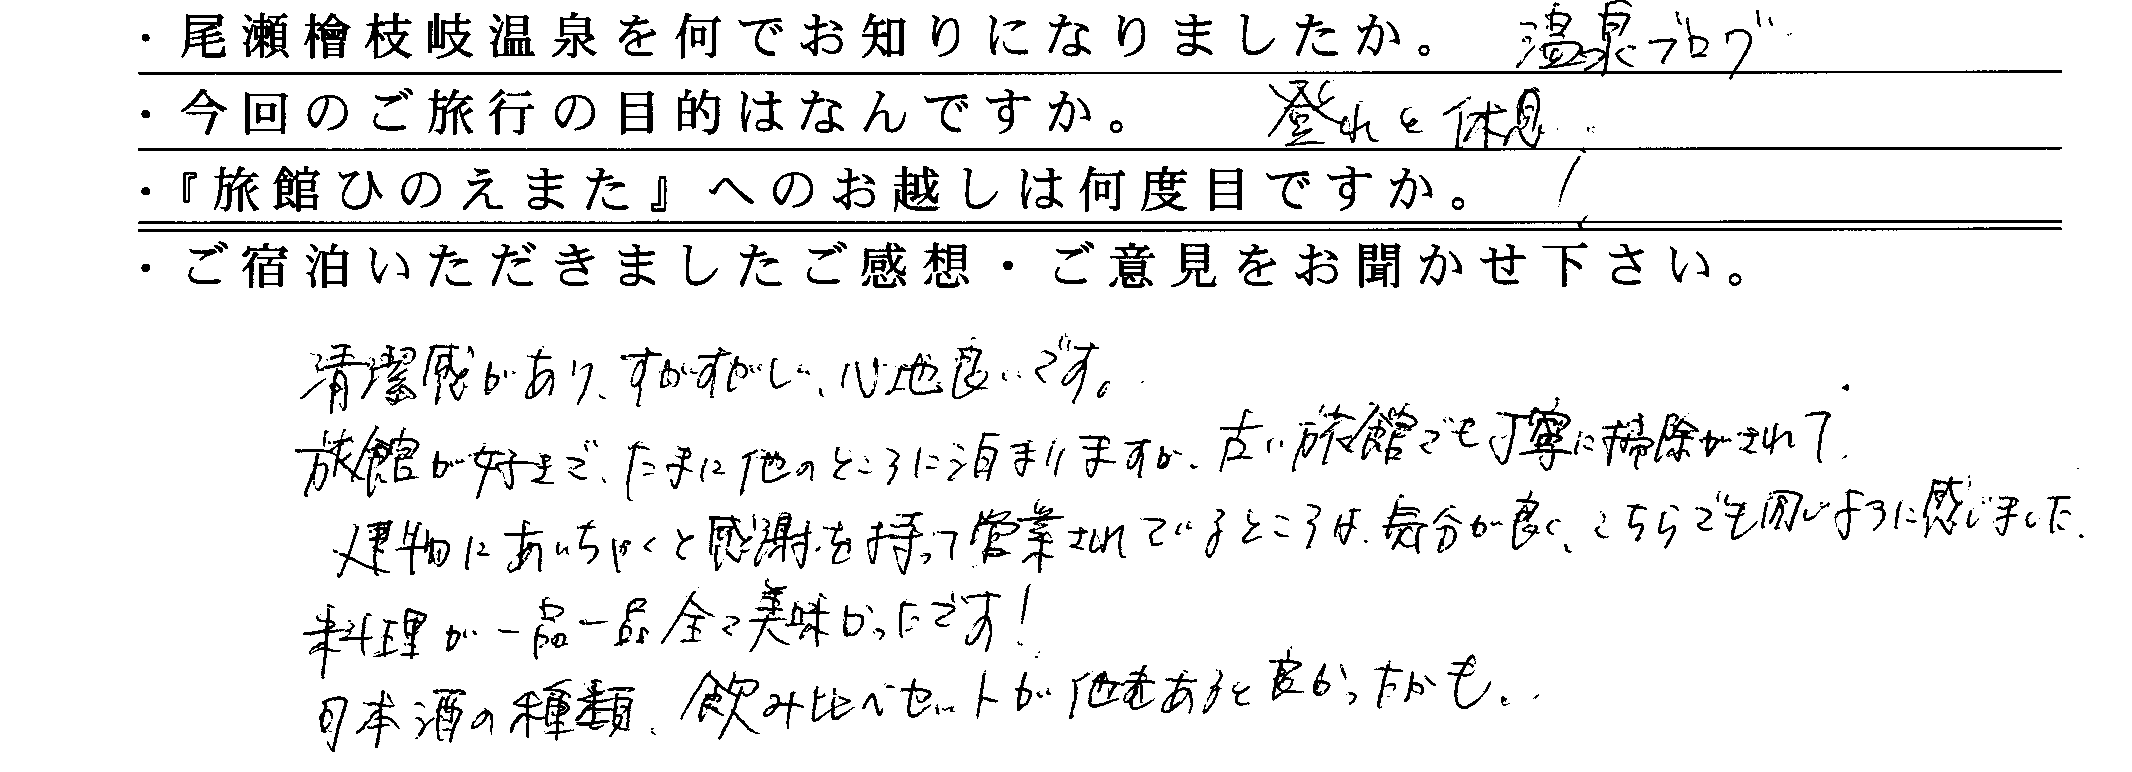 ・尾瀬檜枝岐温泉を何でお知りになりましたか。 温泉ブログ
・今回のご旅行の目的はなんですか。 登れと休息
・『旅館ひのえまた』へのお越しは何度目ですか。 1
・ご宿泊いただきましたご感想・ご意見をお聞かせ下さい。
清潔感があり、すがすがしい、心地良いです。
旅館が好きで、たまに他のところに泊まりますが、古い旅館でも丁寧に掃除がされて
建物にあいちゃくと感謝を持って営業されているところは、気分が良く、こちらでも同じように感じました。
料理が一品一品全て美味かったです!
日本酒の種類、飲み比べセットが他もあると良かったかも。